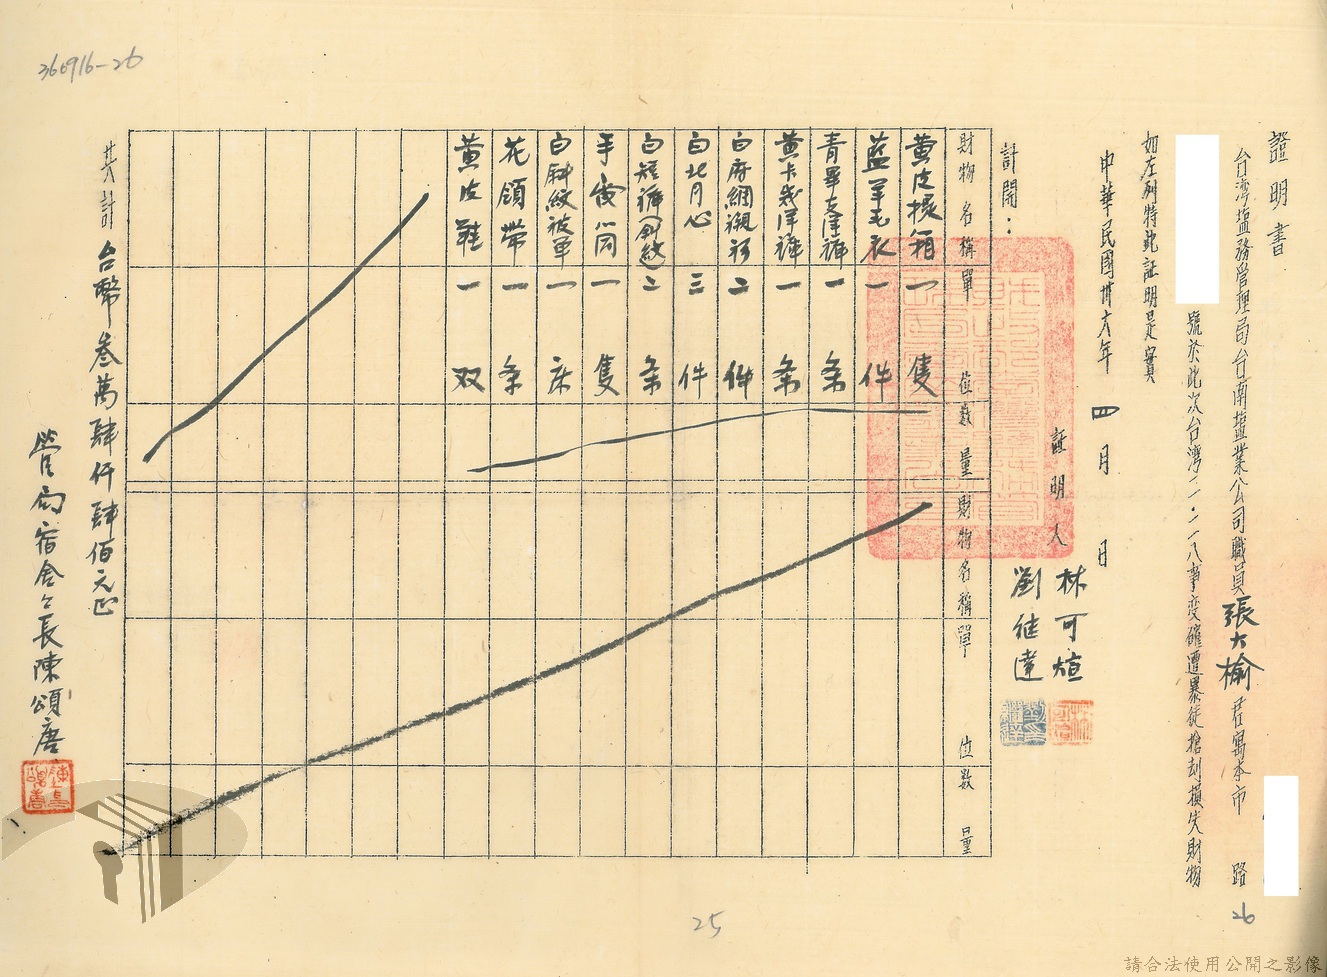 366916-26
證明書
台湾塩務管理局台南塩業公司職員張大榆君寓本市 路
號於此次台湾二·二八事変確遭暴徒搶刦損失財物
如左列特此証明是實
中華民國卅六年四月 日
証明人 林可煊
劉继達
計開：
財物名稱單位數量財物名稱單位數量
黄皮提箱一隻
藍羊毛衣一件
青畢支洋褲一条
黄卡其洋褲一条
白府綢襯衫二件
白北月心三件
白短褲二条
手電筒一隻
白斜紋被單一床
花領帶一条
黄皮鞋一双
共計台幣叁萬肆仟肆佰元正
管局宿舍舍長陳頌唐
25
26
請合法使用公開之影像